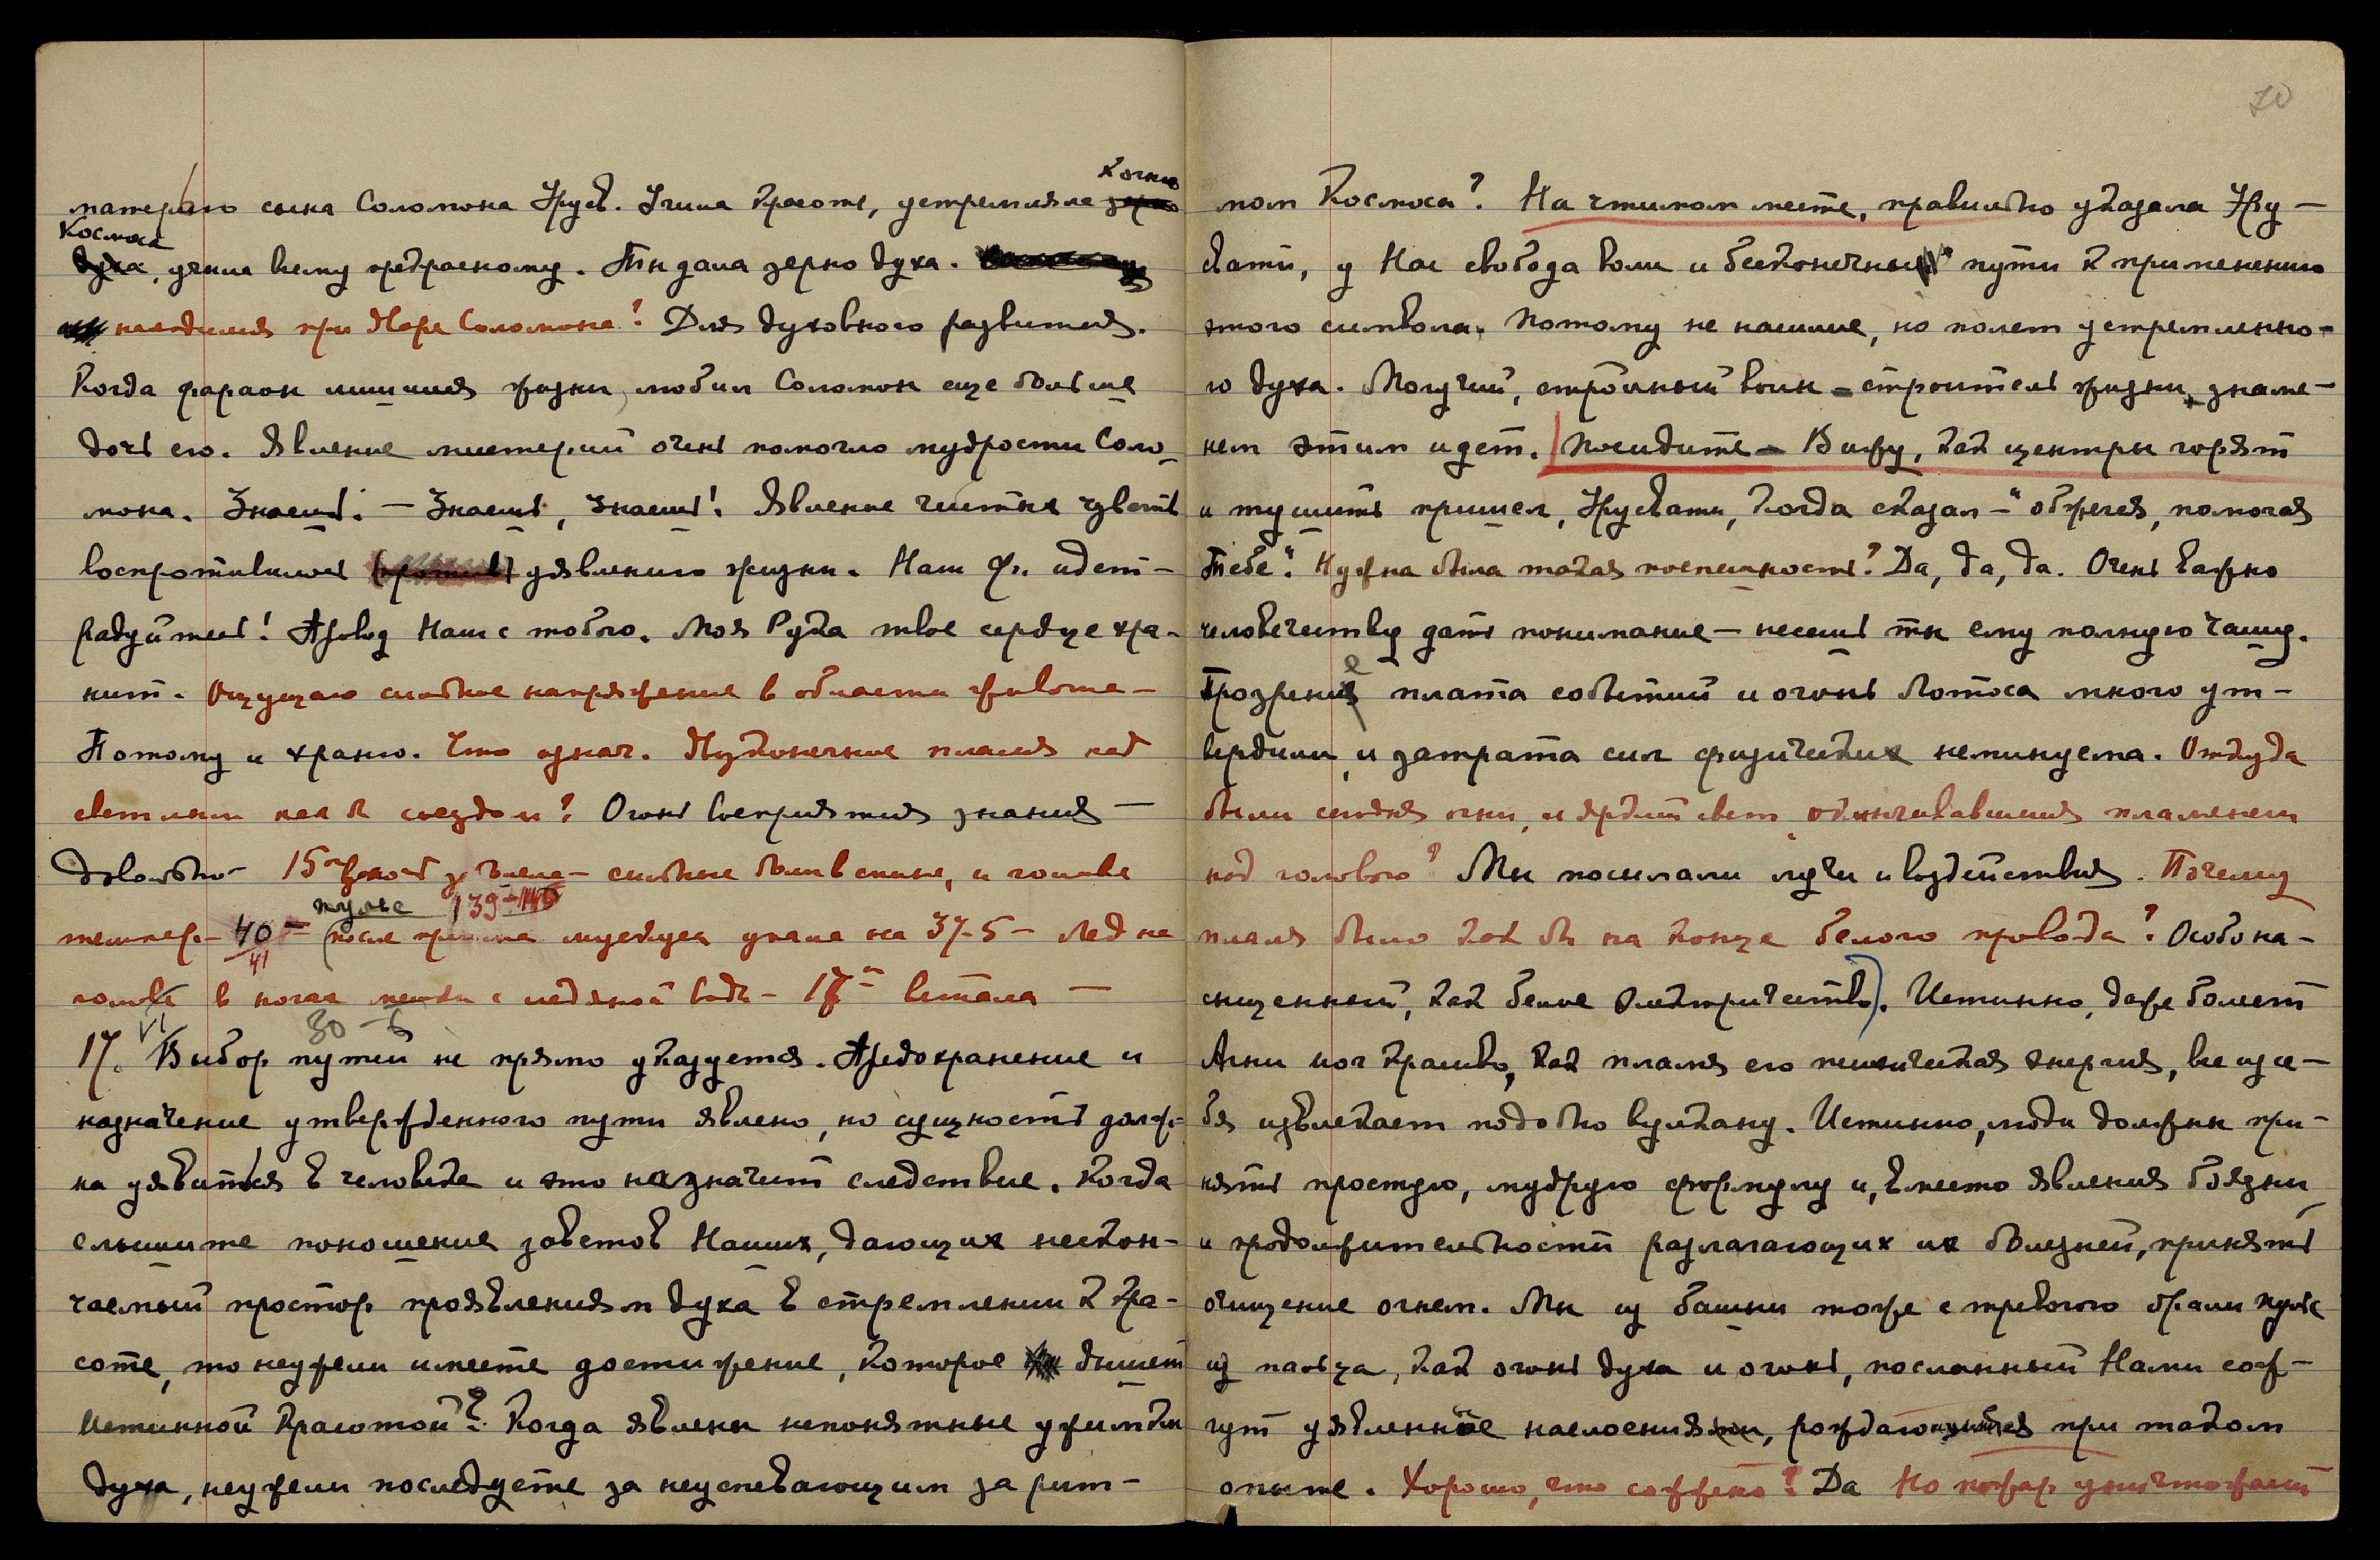 70
Космоса
матерью сына Соломона Урусв. Учила Красоте, устремляла зерно к огню
духа, учила всему прекрасному. Ты дала зерно духа.
находился при дворе Соломона? Для духовного развития.
Когда фараон лишился жизни, любил Соломон еще больше
дочь его. Явление мистерий очень помогло мудрости Соло-
мона. Знаешь. — Знаешь, знаешь! Явление чистых чувств
воспротивилось (против) уявлению жизни. Наш Ф. идет —
радуйтесь! Провод Наш с тобою. Моя Рука твое сердце хра-
нит. Ощущаю сильное напряжение в области живота —
Потому и храню. Что означ. Пухонечное пламя над
светлым как бы гнездом? Огонь восприятия знания —
довольно — 15го сильные боли в спине, и голове
пульс 139 — 140
темпер. — 40 — (после приема мускуса упала на 37.5 — Лед на
41
голове в ногах мешки с ледяной водой — 17го встала —
30 — г.
17. VI Выбор путей не прямо указуется. Предохранение и
назначение утвержденного пути явлено, но сущность долж-
на уявиться в человеке и это назначит следствие. Когда
слышите поношение заветов Наших, дающих нескон-
чаемый простор проявлениям духа в стремлении к кра-
соте, то неужели имеете достижение, которое дышет
истинной Красотой? Когда явлены непонятные ужимки
духа, неужели последуете за неуспевающим за рит-
мом Космоса? На чтимом месте, правильно указала Уру-
свати, у Нас свобода воли и бесконечны пути к применению
этого символа. Потому не насилие, но полет устремленно-
го духа. Могучий, стройный воин — строитель жизни, знаме-
нем этим идет. Посидите — Вижу, как центры горят
и тушить пришел, Урусвати, когда сказал — "обжегся, помогая
Тебе". Нужна была такая поспешность? Да, да, да. Очень важно
человечеству дать понимание — несешь ты ему полную Чашу.
Прозрение плата событий и огонь Лотоса много ут-
вердили, и затрата сил физических неминуема. Откуда
были сегодня огни, и яркий свет, оканчивавшийся пламенем
над головою? Мы посылали лучи и воздействия. Почему
пламя было как бы на конце белого провода? Особо на-
сыщенный, как белое электричество). Истинно, даже болеет
Агни йог красиво, как пламя его психическая энергия, все из се-
бя извлекает подобно вулкану. Истинно, люди должны при-
нять простую, мудрую формулу и, вместо явления боязни
и продолжительности разлагающих их болезней, принять
очищение огнем. Мы из башни тоже с тревогою брали пульс
из пальца, как огонь духа и огонь, посланный Нами сож-
гут уявленные наслоения, рождающиеся при таком
опыте. Хорошо, что сожжено? Да Но пожар уничтожает